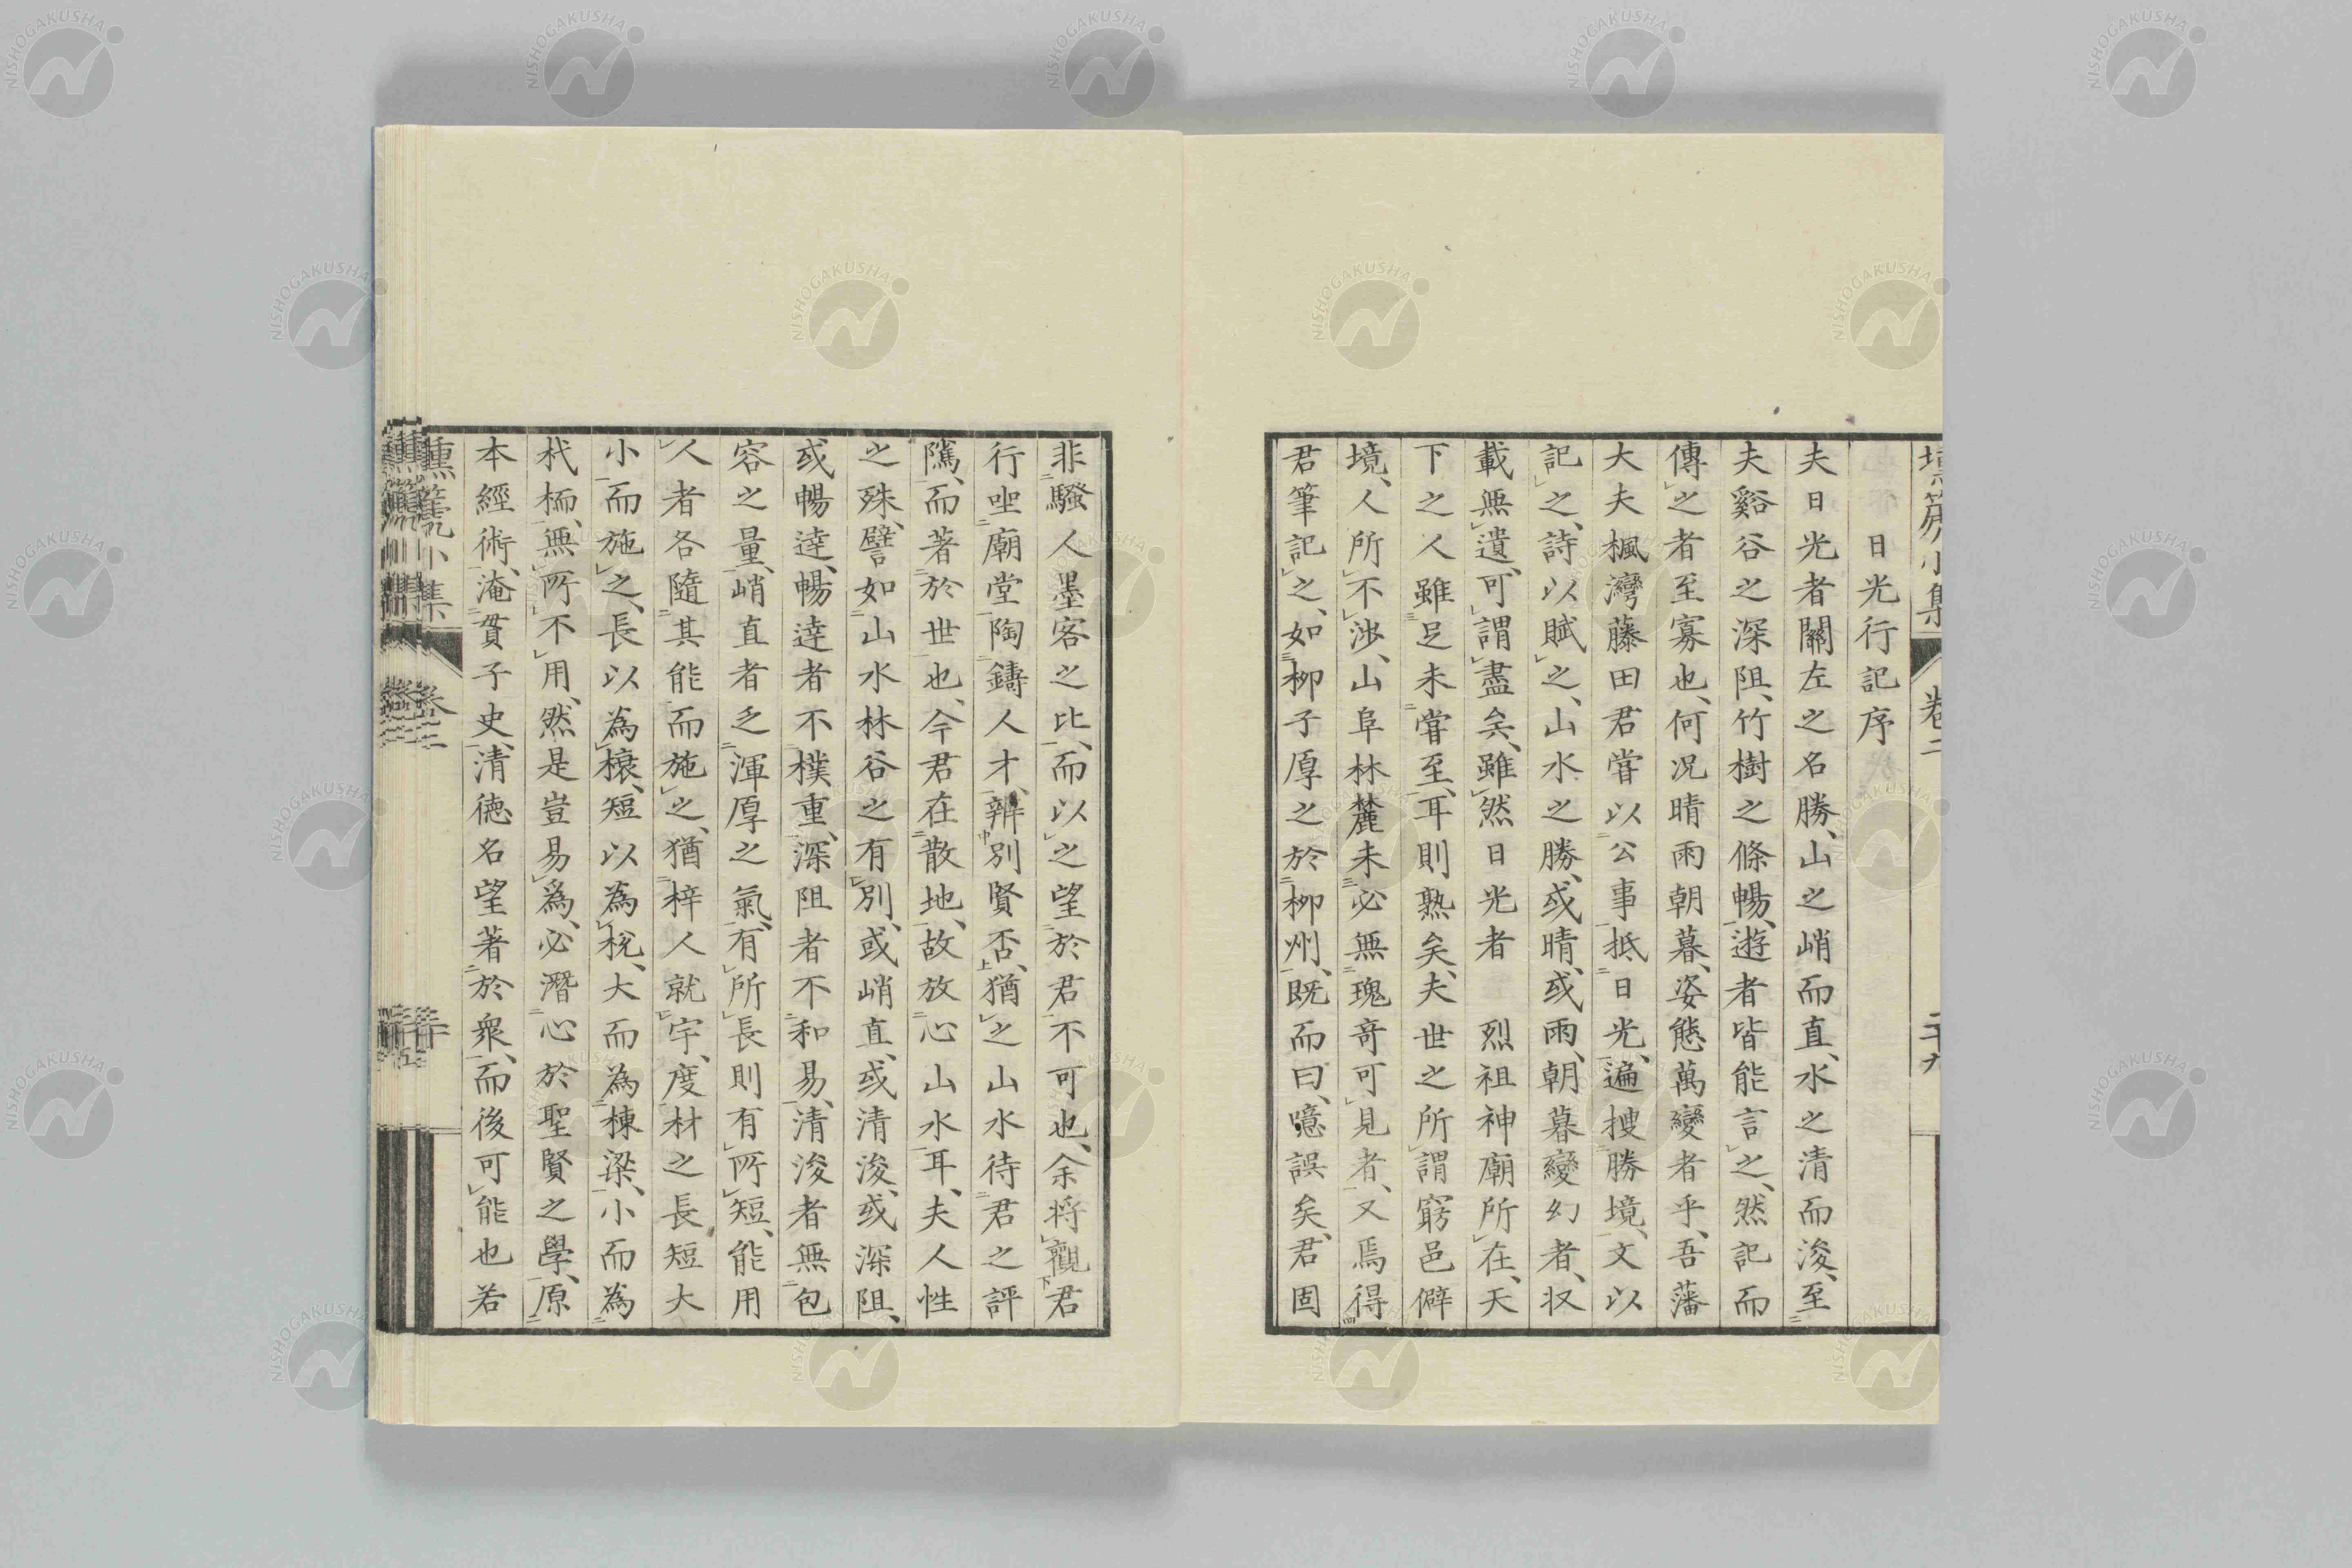 日光行記序
夫日光者關左之名勝、山之峭而直、水之清而浚、至
夫谿谷之深阻、竹樹之條暢、遊者皆能言之、然記而
傳之者至寡也、何况晴雨朝暮、姿態萬變者乎、吾藩
大夫楓灣藤田君嘗以公事抵日光、遍捜勝境、文以
記之、詩以賦之、山水之勝、或晴、或雨、朝暮變幻者、収
載無遺、可謂盡矣、雖然日光者　烈祖神廟所在、天
下之人雖足未嘗至、耳則熟矣、夫世之所謂窮邑僻
境、人所不渉、山阜林麓未必無瑰奇可見者、又焉得
君筆記之、如柳子厚之於柳州、既而曰、噫誤矣、君固
非騷人墨客之比、而以之望於君不可也、余将觀君
行坐廟堂陶鑄人才、辨別賢否、猶之山水待君之評
隲、而著於世也、今君在散地、故放心山水耳、夫人性
之殊、譬如山水林谷之有別、或峭直、或清浚、或深阻、
或暢達、暢達者不樸重、深阻者不和易、清浚者無包
容之量、峭直者乏渾厚之氣、有所長則有所短、能用
人者各隨其能而施之、猶梓人就宇、度材之長短大
小而施之、長以為榱、短以為梲、大而為棟梁、小而為
杙栭、無所不用、然是豈易爲、必潛心於聖賢之學、原
本經術、淹貫子史、清徳名望著於衆、而後可能也若
壎篪小集
卷二
NISHOGAKUSHA